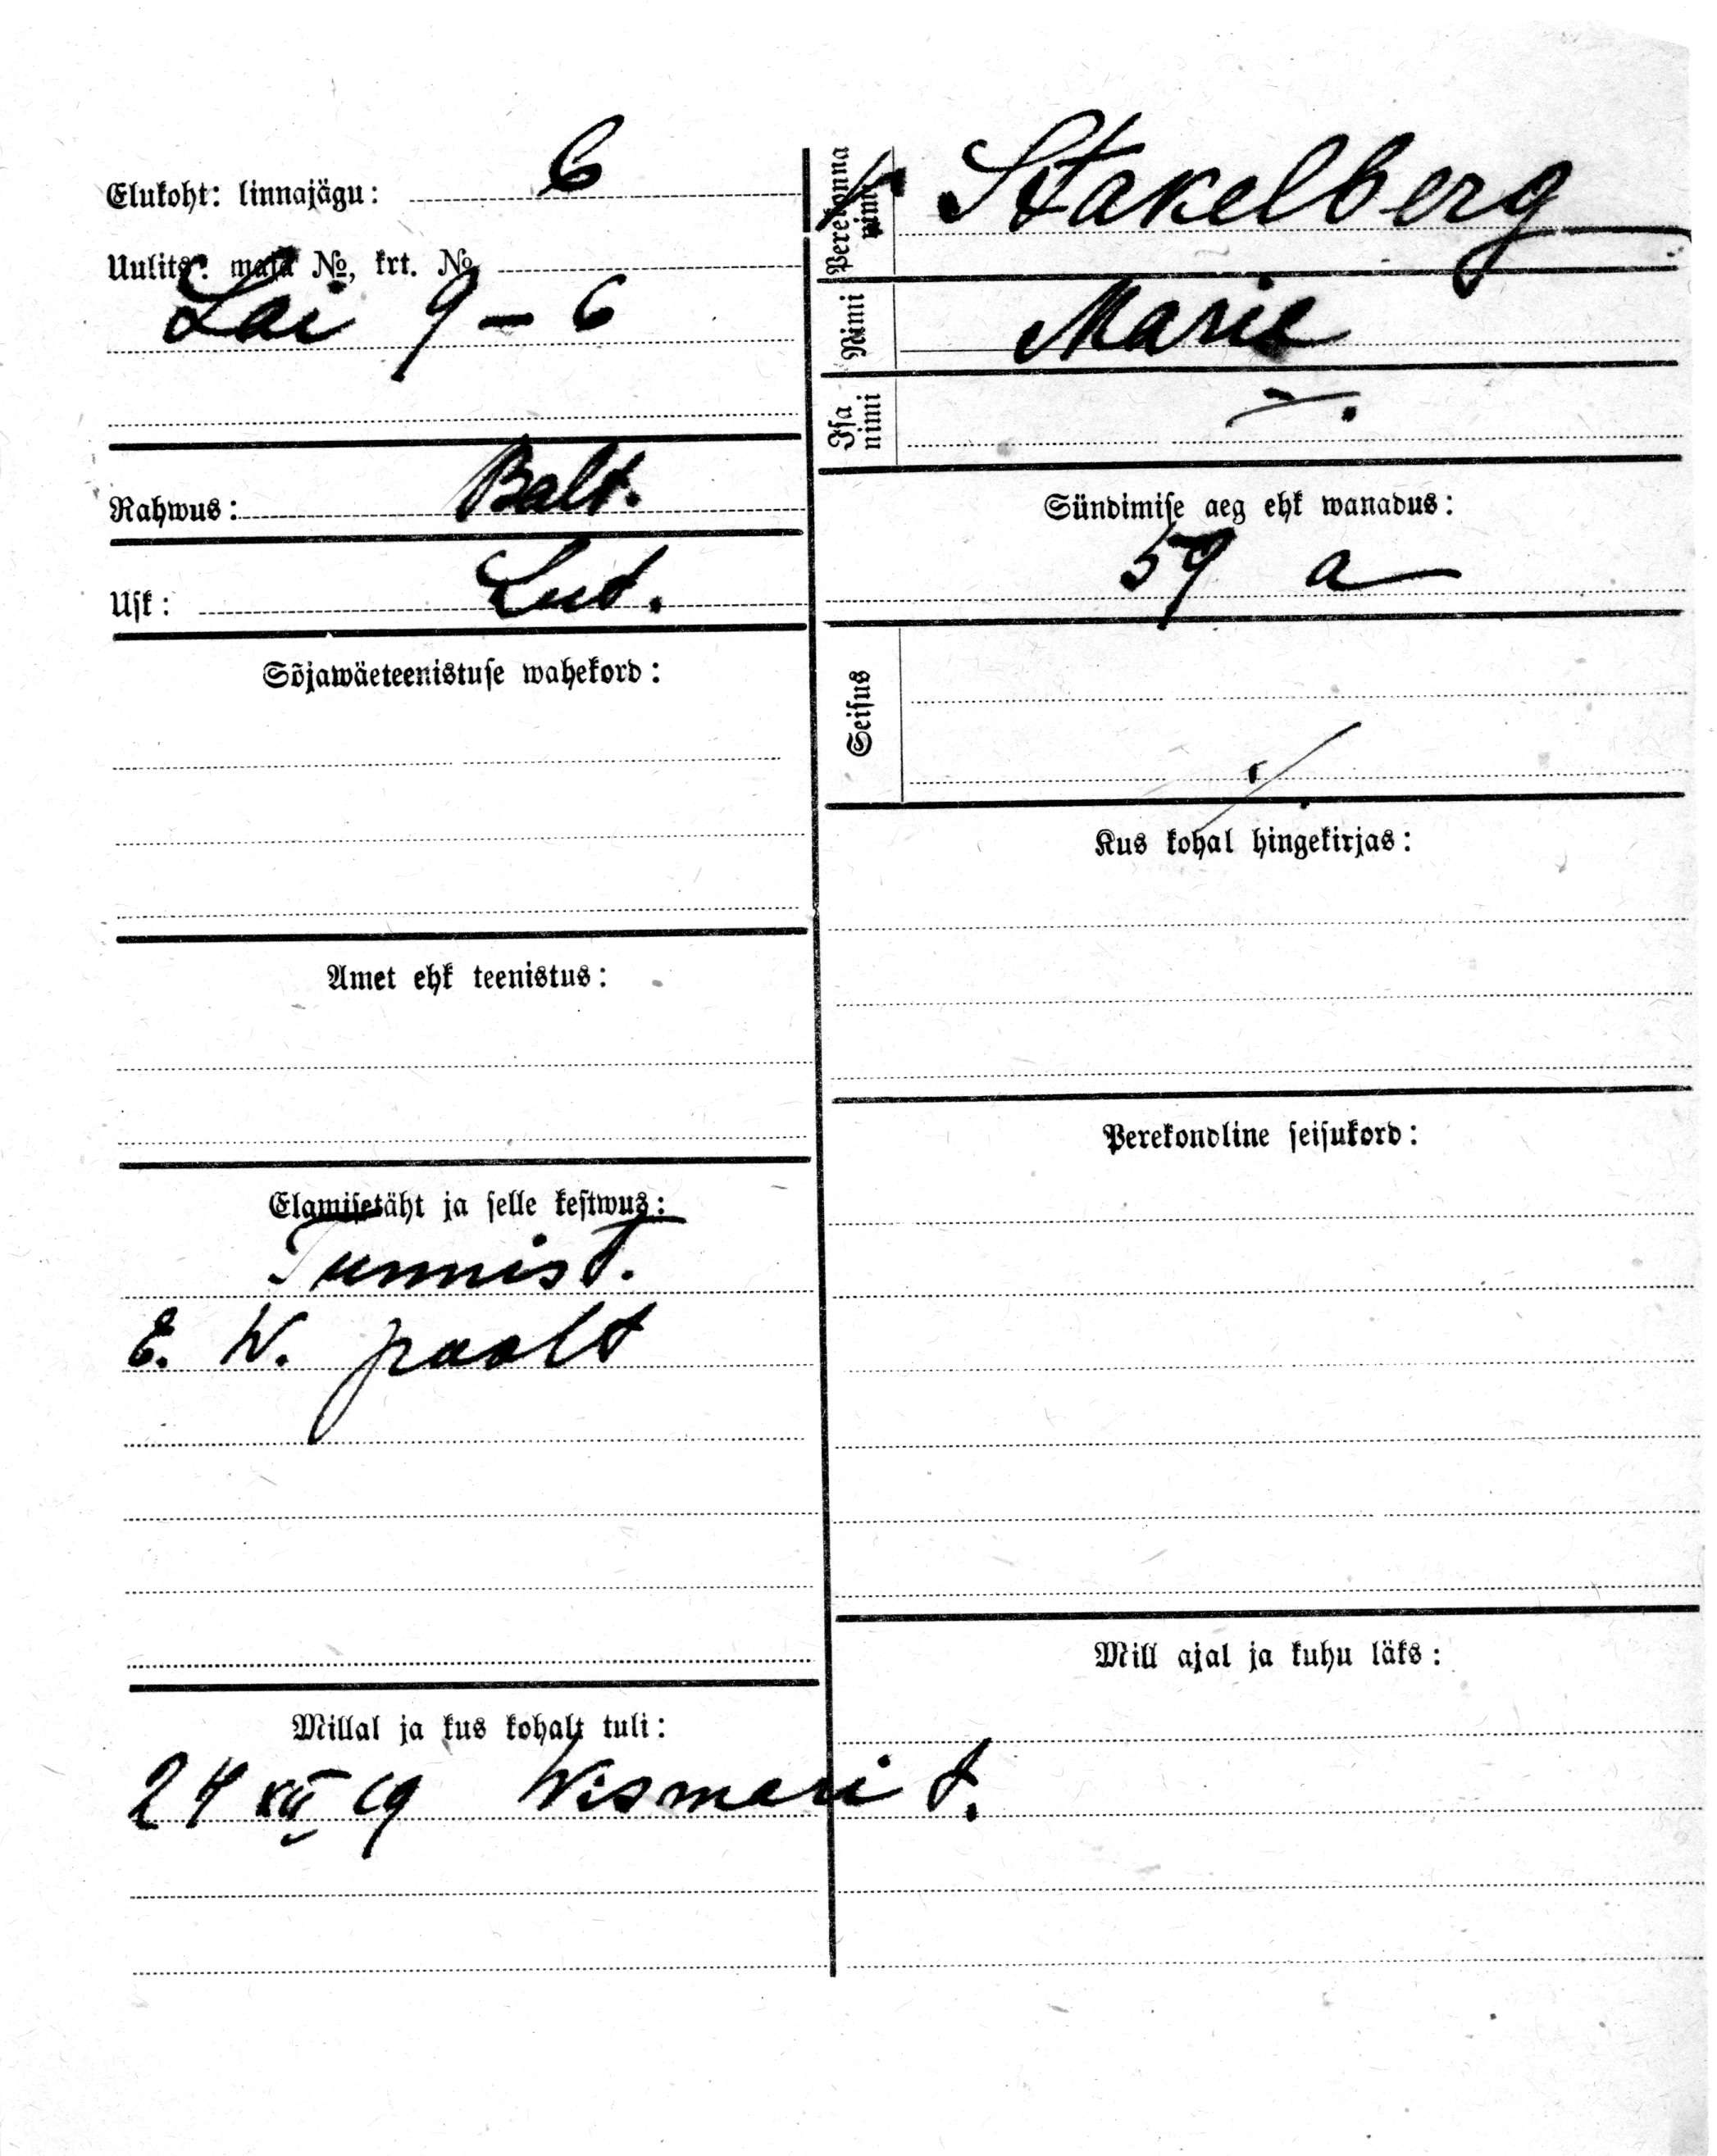 Elukoht: linnajägu: 6
Uulits: maja №, krt. №
Lai 9 – 6
Rahwus: Balt.
Usk: Lut.
Sõjawäeteenistuse wahekord:
Amet ehk teenistus:
Elamisetäht ja selle kestwus:
Tunnist.
E. W. poolt
Millal ja kus kohalt tuli:
24 XII 19 Wismari t.
Perekonna nimi Stakelberg
Nimi Marie
Isa nimi –.
Sündimise aeg ehk wanadus:
59 a
Seisus
Kus kohal hingekirjas:
Perekondline seisukord:
Mill ajal ja kuhu läks: